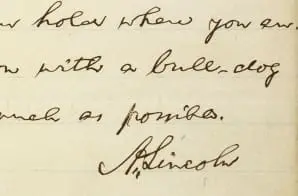 hold where you are.
with a bull-dog
much as possible.
A. Lincoln